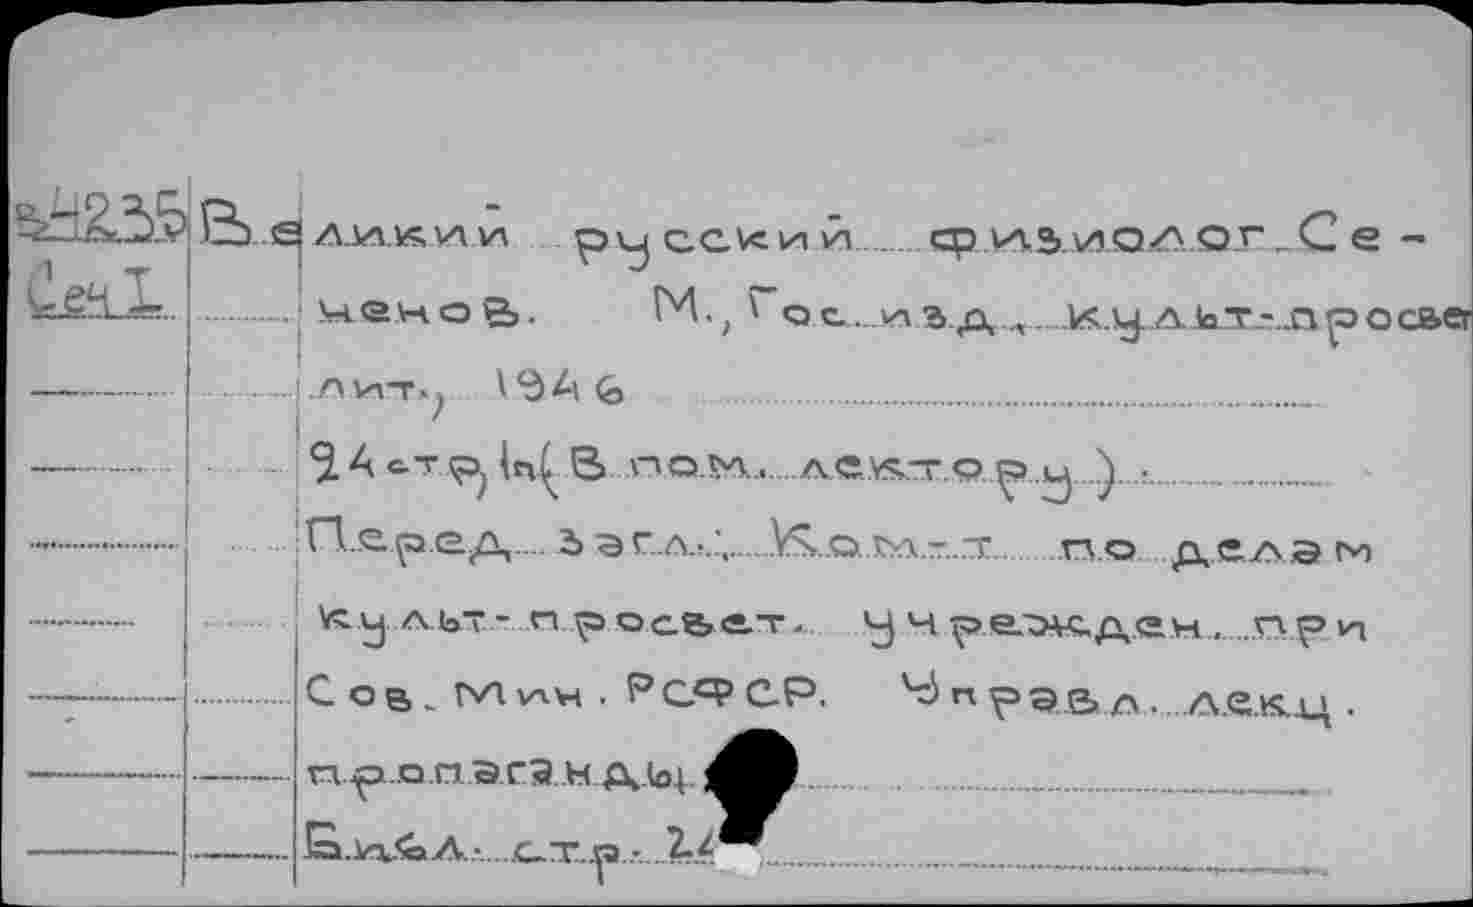 Великий русский физиолог Се-
Сеч I
ченов. М., Гос. изд, культ-просвет
лит., 1946
24 стр, In( В пом. лектору).
Перед загл.: Ком-т по делам
культ-просвет. учрежден. при
Сов. Мин. РСФСР. Управл. лекц.
пропаганды
Библ. стр.